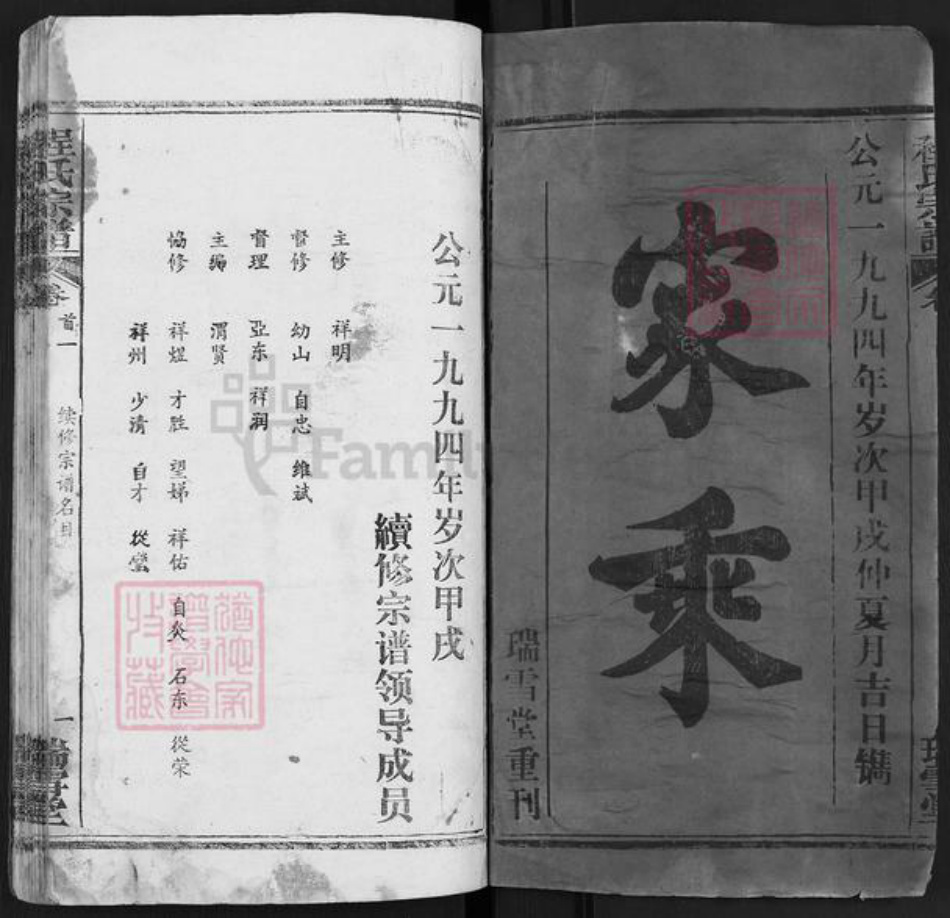 公元一九九四年岁次甲戌仲夏月吉日镌
家乘
瑞雪堂重刊
公元一九九四年岁次甲戌
續修宗谱领导成员
主修 祥明
督修 幼山 自忠 维斌
督理 亞东 祥润
主编 渭贤
协修 祥煜 才胜 望娣 祥佑 自炎 石东 從荣
祥州 少清 自才 從蛮
程氏宗谱
卷首一
续修宗谱名目
一
瑞雪堂
Famil